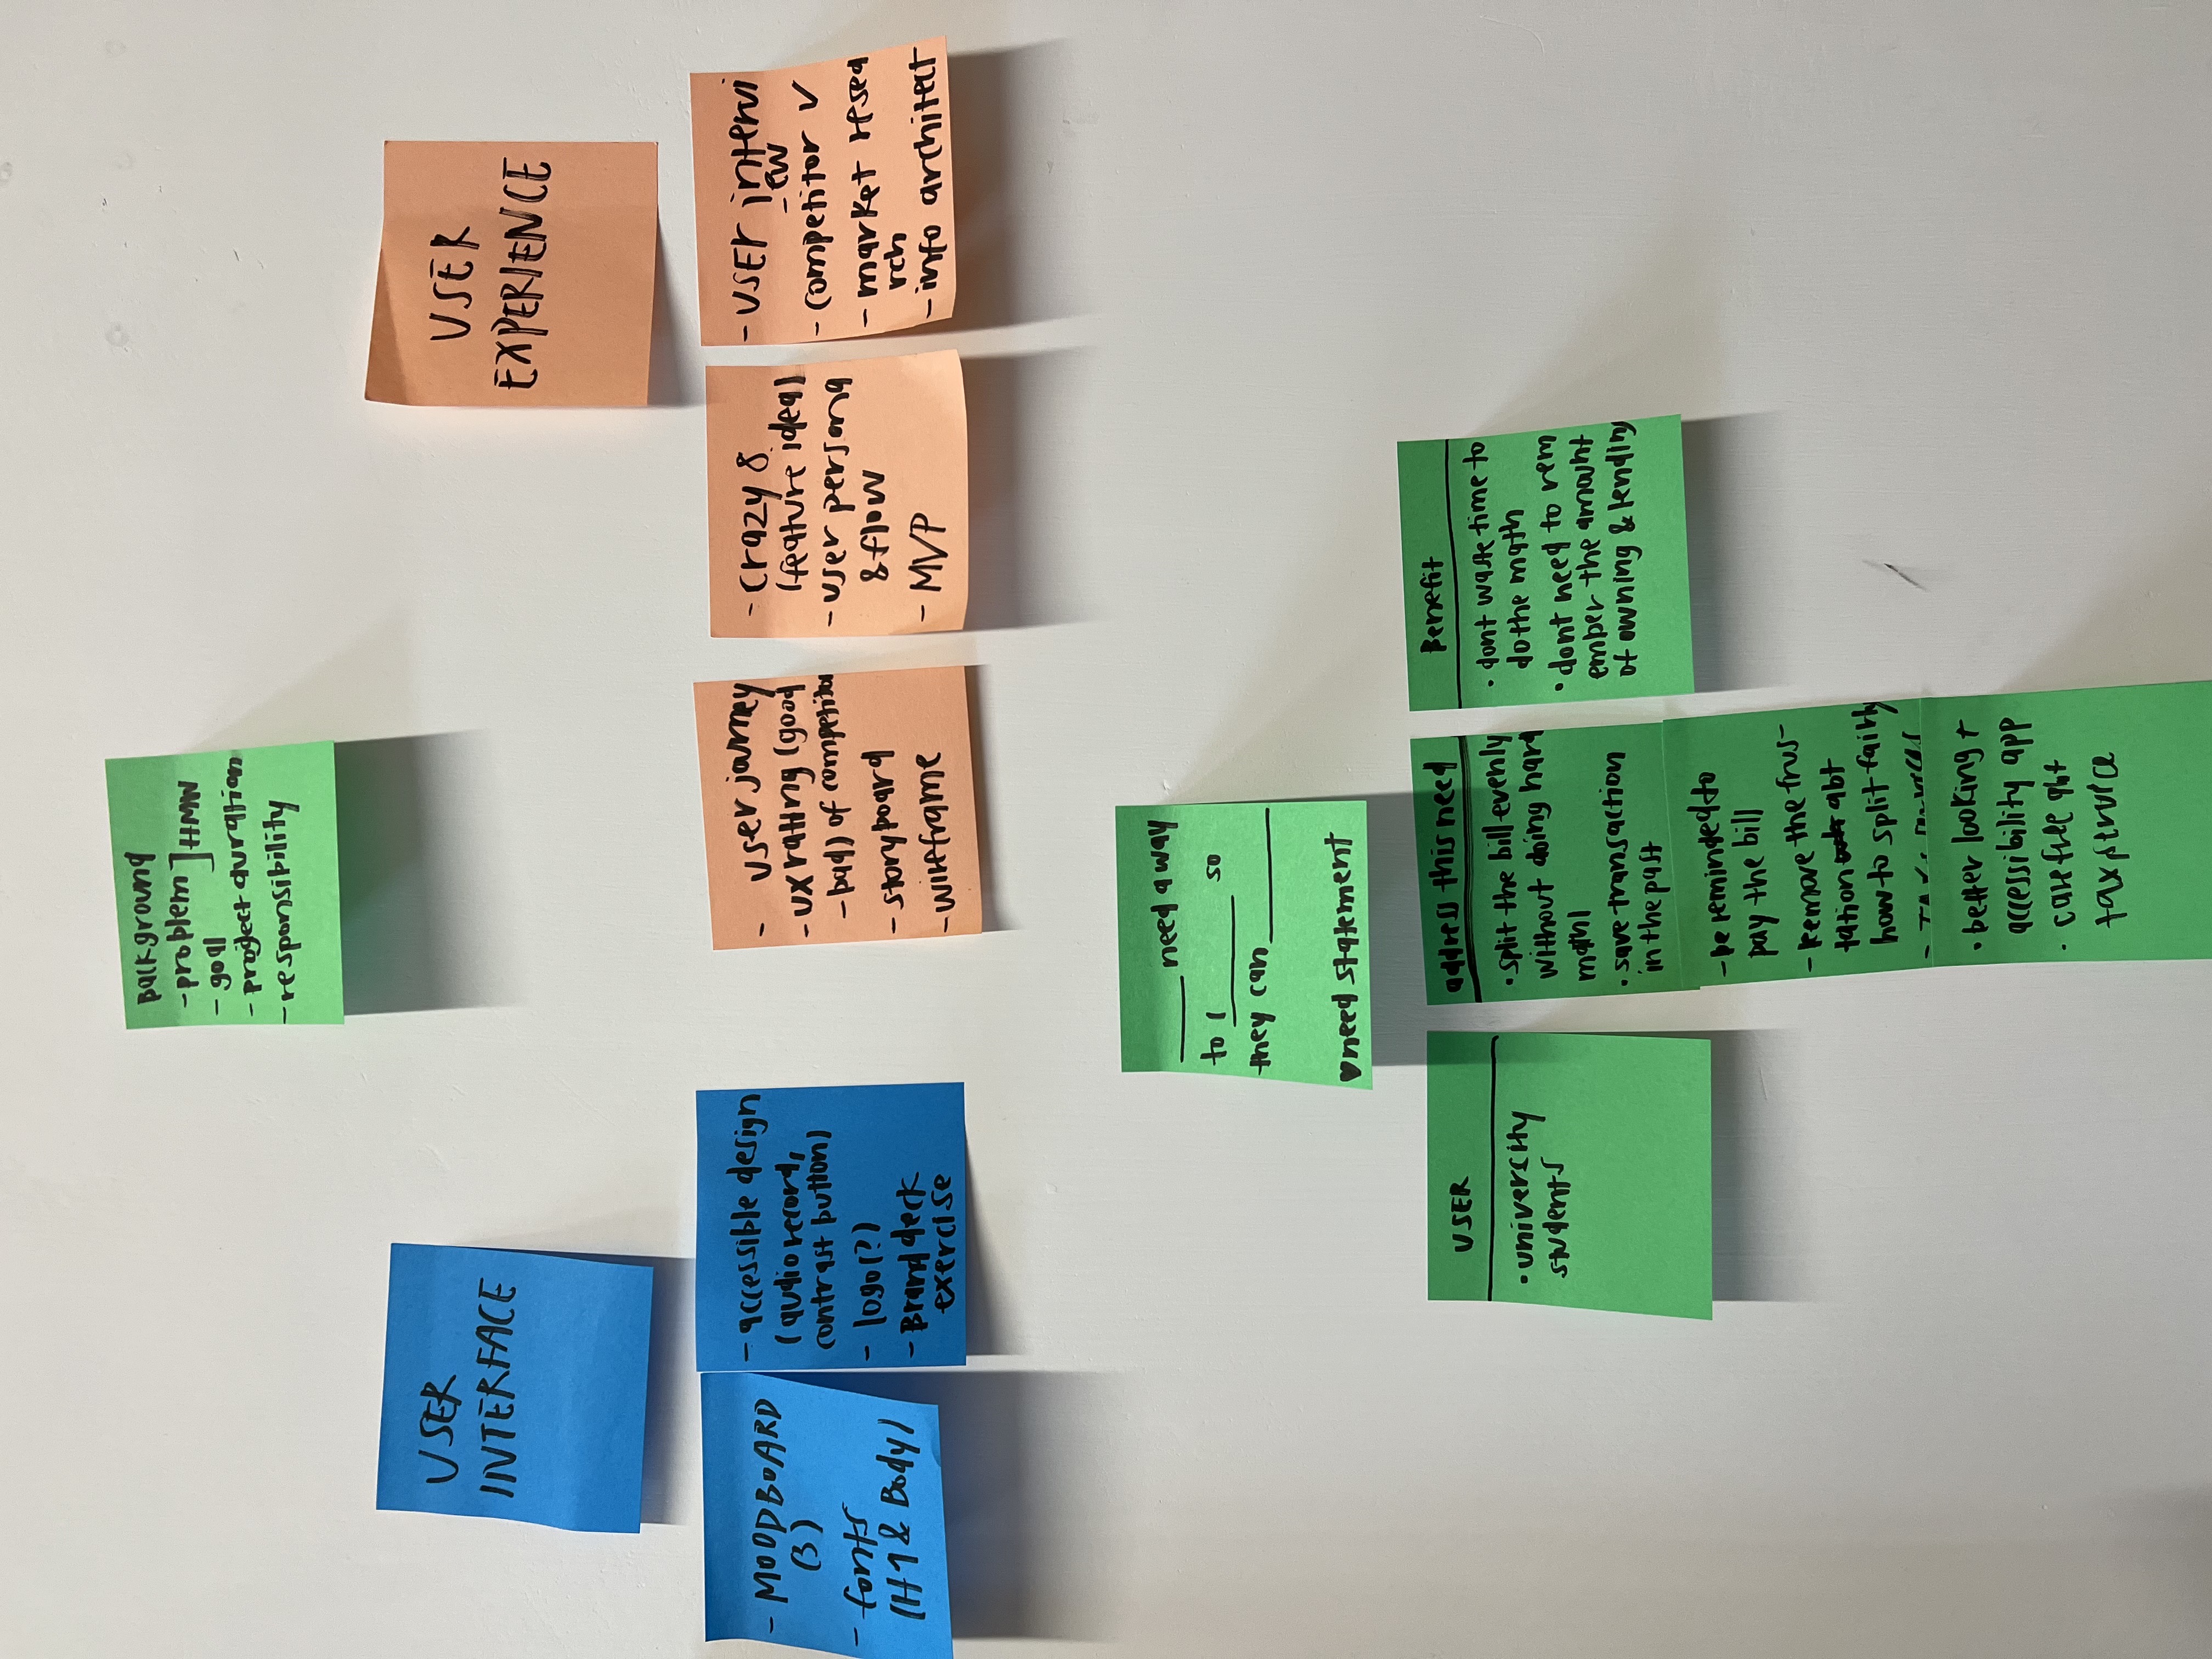 Background
- problem ] HMW
- goal
- project duration
- responsibility
USER
INTERFACE
USER
EXPERIENCE
- MOODBOARD
(3)
- fonts
(H1 & Body)
- accessible design
(audio record,
contrast button)
- logo(?)
- Brand deck
exercise
- user journey
- UX rating (good
- bad) of competitor
- storyboard
- wireframe
- crazy 8
(feature idea)
- user persona
& flow
- MVP
- USEr intervi
-ew
- competitor ✓
- market resea
rch
- info architect
____ need a way
to ( ____ so
they can ____
♥need statement
USER
• university
students
address this need
• split the bill evenly
without doing hard
math)
• save transaction
in the past
- be reminded to
pay the bill
- Remove the frus-
tation abt
how to split fairly
- TAX & services
• better looking +
accessibility app
• care free abt
tax service
Benefit
• dont waste time to
do the math
• dont need to rem
ember the amount
of owning & lending